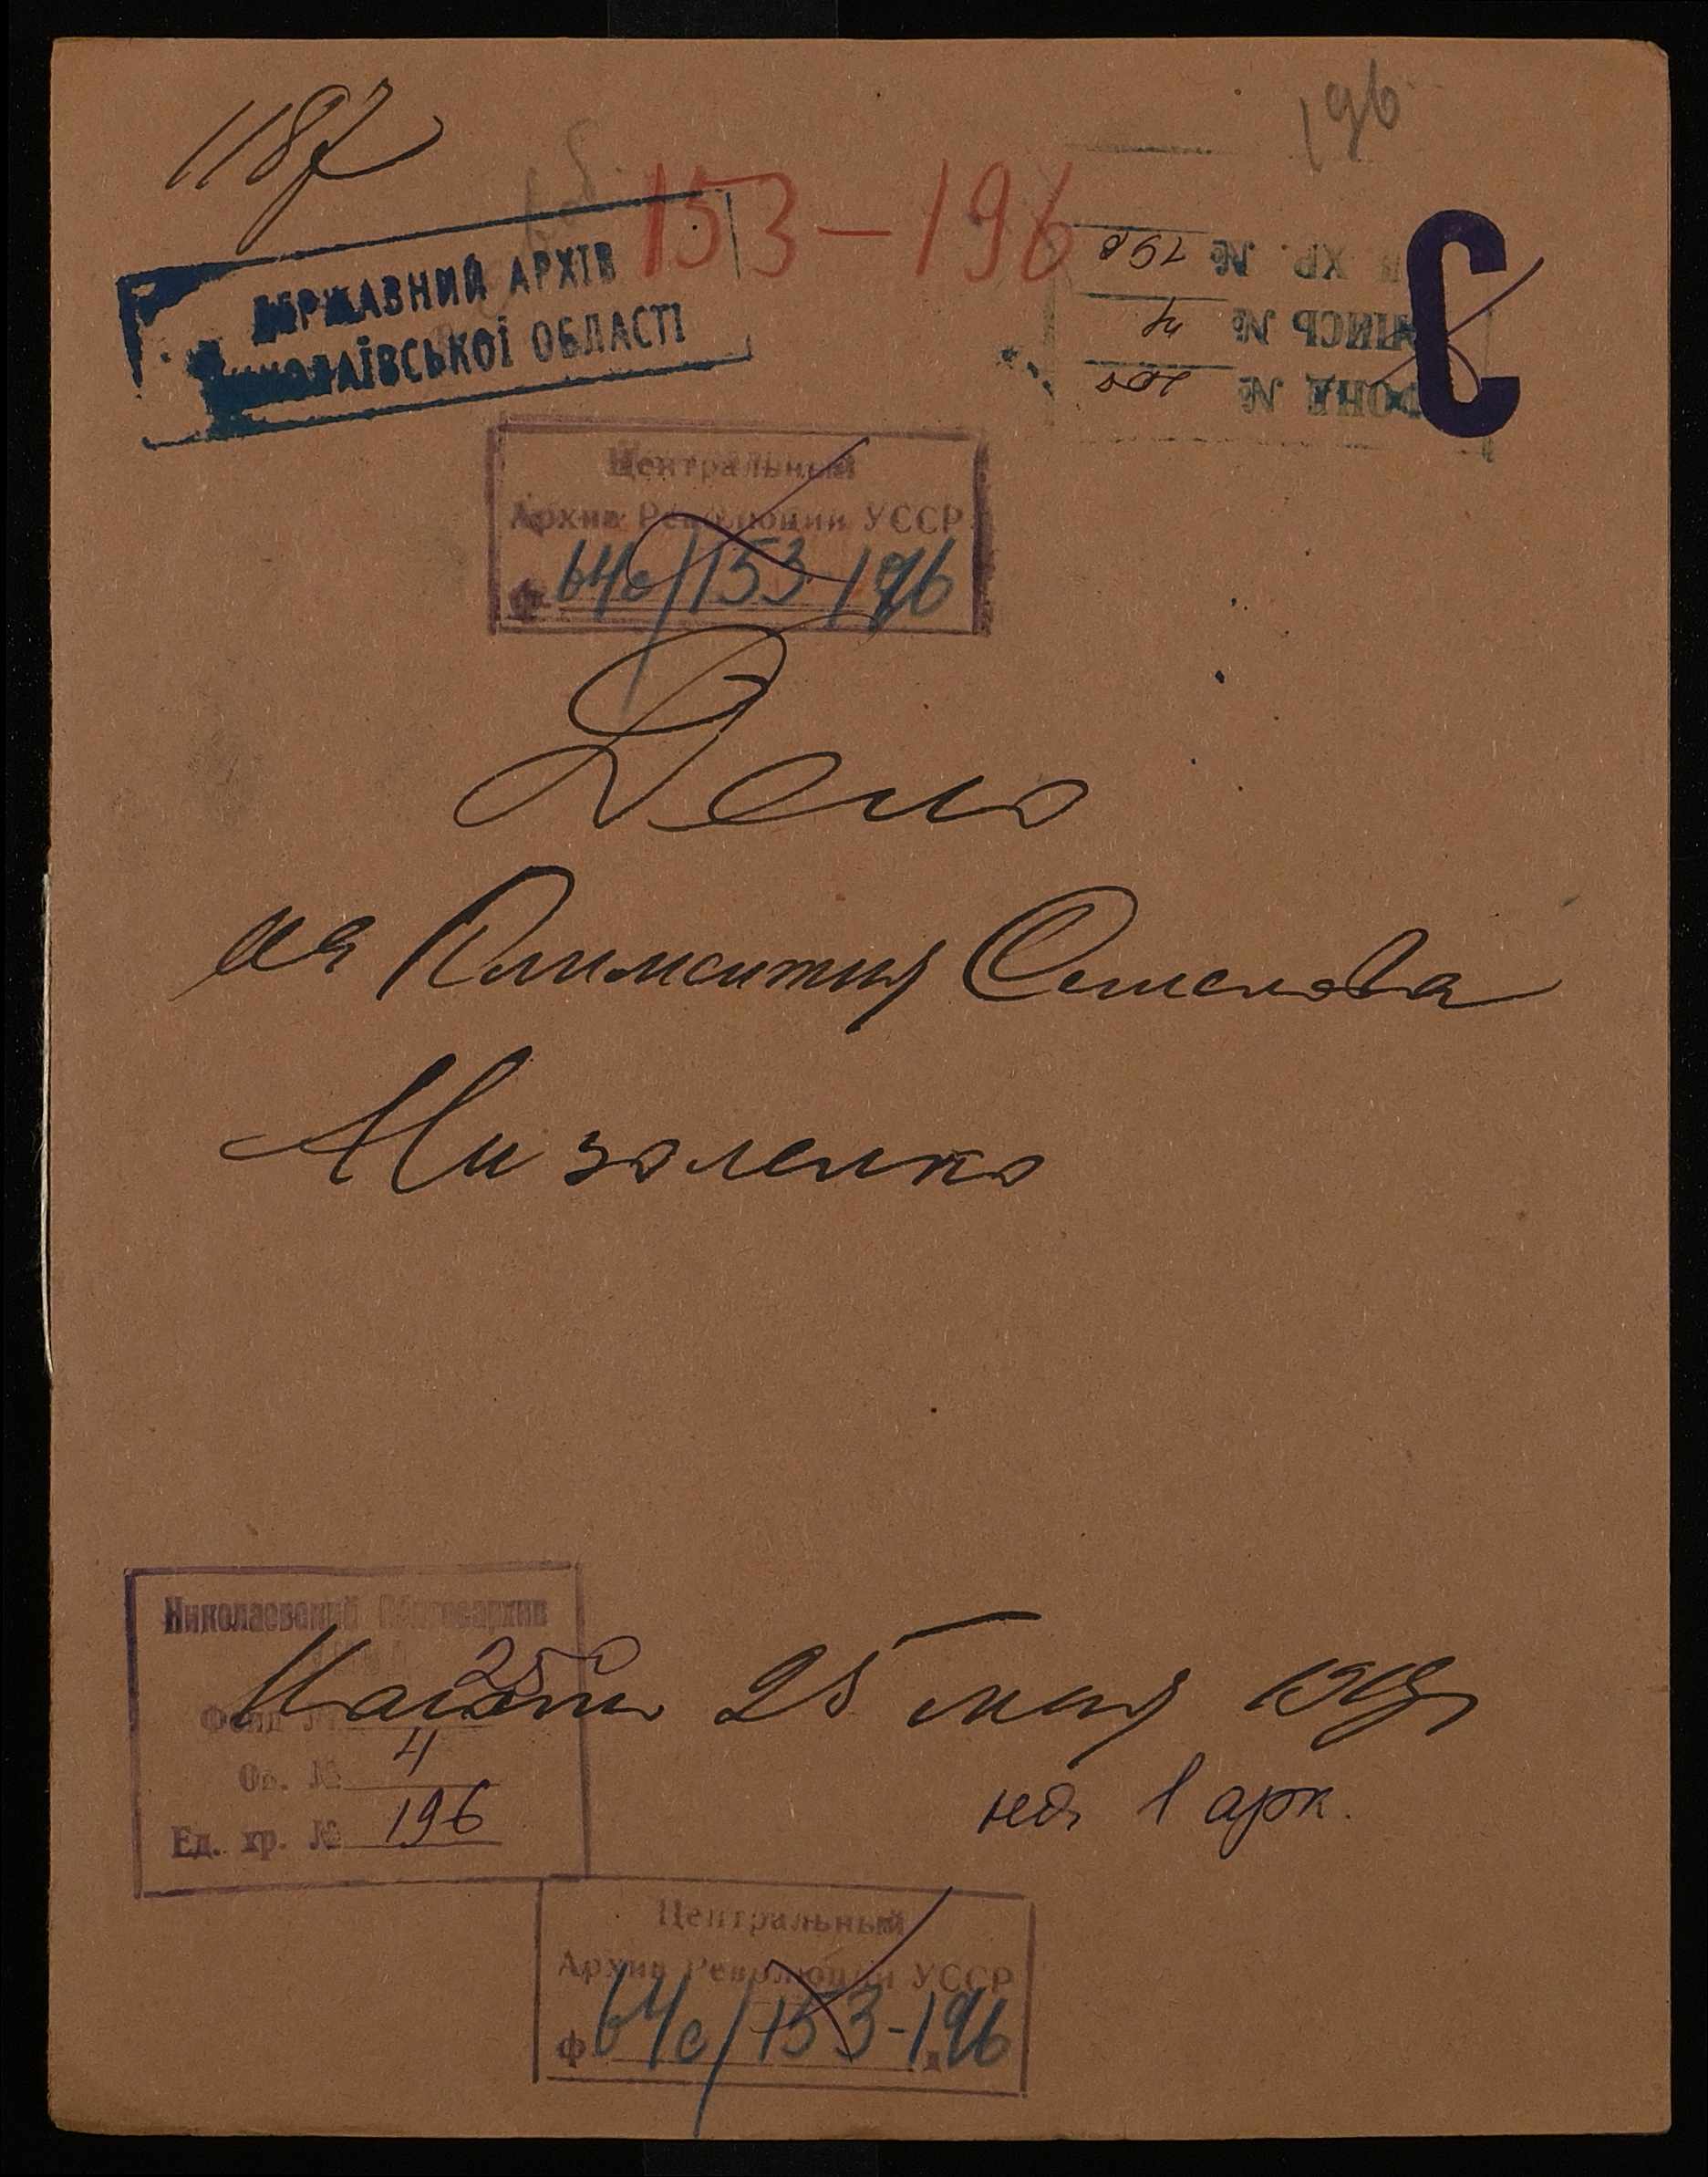 1187
196
153–196
ДЕРЖАВНИЙ АРХІВ
МИКОЛАЇВСЬКОЇ ОБЛАСТІ
ФОНД №
ОПИСЬ № 4
ХР. № 196
С
Центральный
Архив Революции УССР
ф. 64с/153-196
Дело
на Климентия Семенова
Мизоленко
Николаевский Облгосархив
Фонд №
Оп. № 4
Ед. хр. № 196
25 мая
1 арк.
Центральный
Архив Революции УССР
ф 64с/153-196